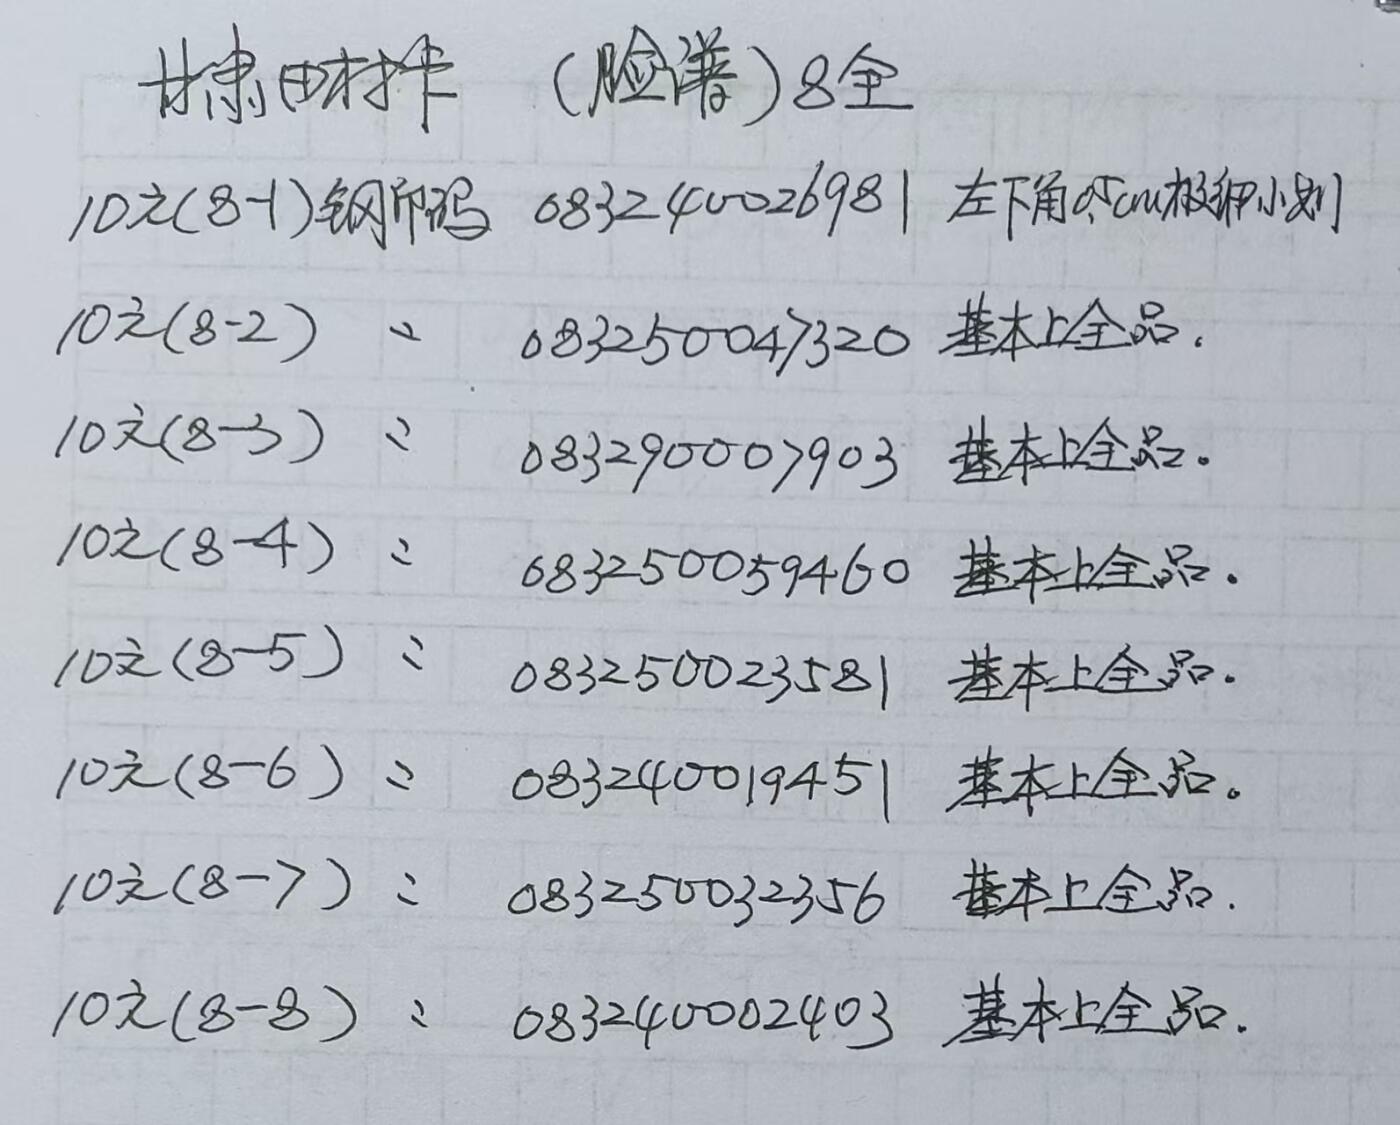 甘肃田村卡 (脸谱)8全
10元(8-1)钢印码 0832400026981 左下角0.5cm极细小划
10元(8-2) 〃 0832500047320 基本上全品.
10元(8-3) 〃 0832900007903 基本上全品.
10元(8-4) 〃 0832500059460 基本上全品.
10元(8-5) 〃 083250023581 基本上全品.
10元(8-6) 〃 083240019451 基本上全品。
10元(8-7) 〃 083250032356 基本上全品.
10元(8-8) 〃 0832400002403 基本上全品.